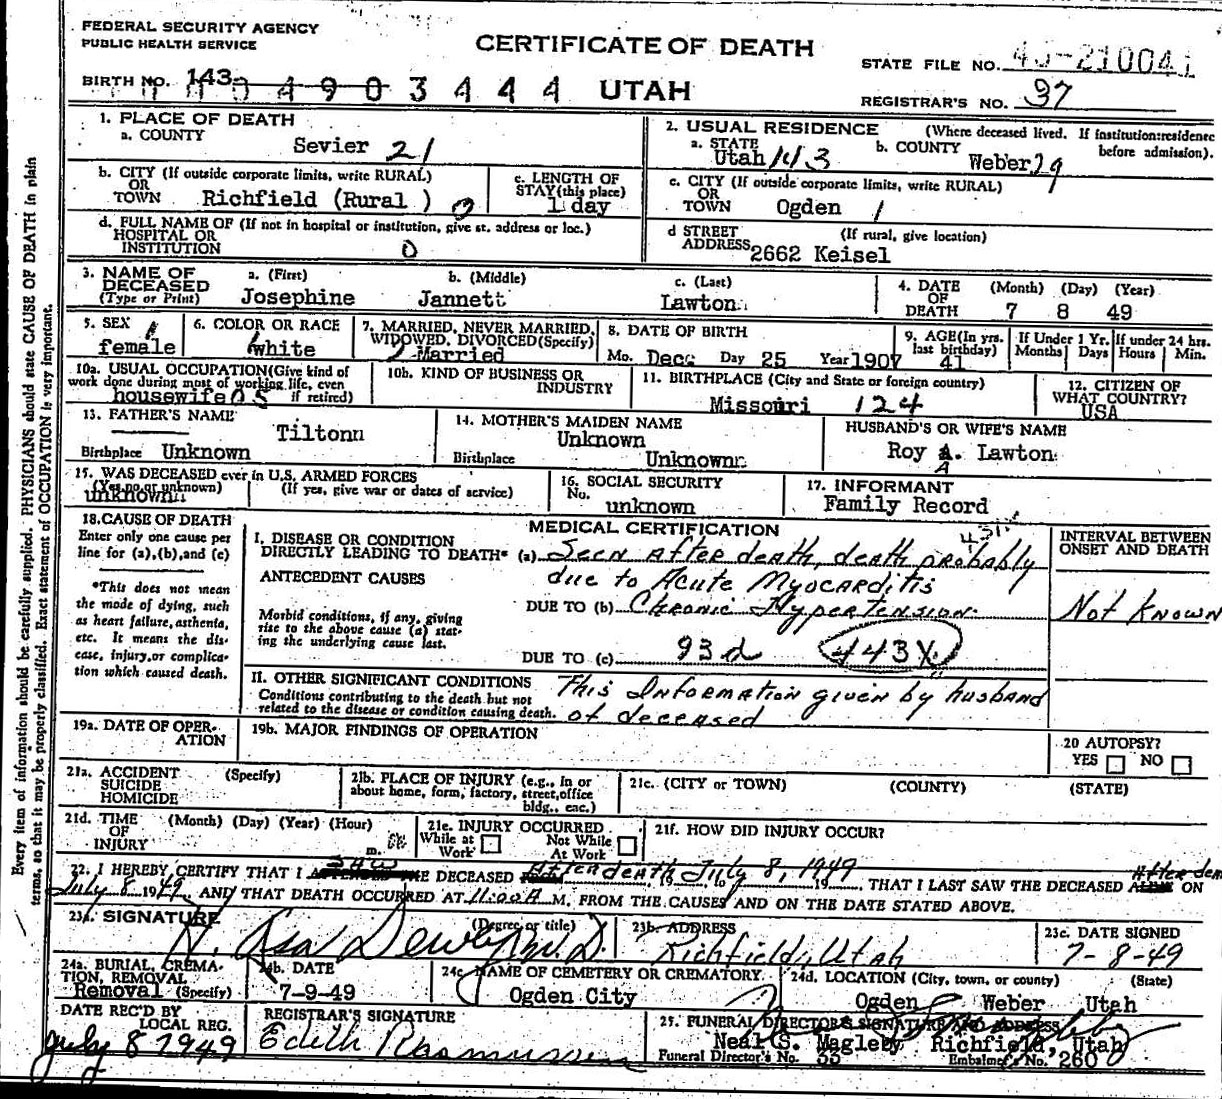 FEDERAL SECURITY AGENCY
PUBLIC HEALTH SERVICE
CERTIFICATE OF DEATH
STATE FILE NO.
BIRTH NO. 143 4 9 0 3 4 4 4 UTAH
REGISTRAR'S NO. 37
1. PLACE OF DEATH
a. COUNTY
Sevier 21
2. USUAL RESIDENCE (Where deceased lived. If institution:residence before admission).
a. STATE Utah 143 b. COUNTY Weber 29
b. CITY (If outside corporate limits, write RURAL)
OR
TOWN Richfield (Rural ) 0
c. LENGTH OF
STAY(this place)
1 day
c. CITY (If outside corporate limits, write RURAL)
OR
TOWN Ogden 1
d. FULL NAME OF (If not in hospital or institution, give st. address or loc.)
HOSPITAL OR
INSTITUTION 0
d STREET (If rural, give location)
ADDRESS 2662 Keisel
3. NAME OF DECEASED (Type or Print)
a. (First) b. (Middle) c. (Last)
Josephine Jannett Lawton
4. DATE OF DEATH (Month) (Day) (Year)
7 8 49
5. SEX
female
6. COLOR OR RACE
white
7. MARRIED, NEVER MARRIED,
WIDOWED, DIVORCED(Specify)
Married
8. DATE OF BIRTH
Mo. Dec. Day 25 Year 1907
9. AGE(In yrs. last birthday)
41
If Under 1 Yr.
Months Days
If under 24 hrs.
Hours Min.
10a. USUAL OCCUPATION(Give kind of
work done during most of working life, even
if retired)
housewife 05
10b. KIND OF BUSINESS OR
INDUSTRY
11. BIRTHPLACE (City and State or foreign country)
Missouri 124
12. CITIZEN OF
WHAT COUNTRY?
USA
13. FATHER'S NAME
Tiltonn
Birthplace Unknown
14. MOTHER'S MAIDEN NAME
Unknown
Birthplace Unknown
HUSBAND'S OR WIFE'S NAME
Roy A. Lawton
A
15. WAS DECEASED ever in U.S. ARMED FORCES
(Yes,no,or unknown) (If yes, give war or dates of service)
unknown
16. SOCIAL SECURITY
No.
unknown
17. INFORMANT
Family Record
18. CAUSE OF DEATH
Enter only one cause per
line for (a),(b),and (c)
*This does not mean
the mode of dying, such
as heart failure, asthenia,
etc. It means the dis-
ease, injury,or complica-
tion which caused death.
MEDICAL CERTIFICATION
I. DISEASE OR CONDITION
DIRECTLY LEADING TO DEATH* (a) Seen after death, death probably
due to Acute Myocarditis
ANTECEDENT CAUSES
Morbid conditions, if any, giving
rise to the above cause (a) stat-
ing the underlying cause last.
DUE TO (b) Chronic Hypertension.
DUE TO (c) 93d 443X
II. OTHER SIGNIFICANT CONDITIONS
Conditions contributing to the death but not
related to the disease or condition causing death.
This Information given by husband
of deceased
INTERVAL BETWEEN
ONSET AND DEATH
Not Known
19a. DATE OF OPER-
ATION
19b. MAJOR FINDINGS OF OPERATION
20 AUTOPSY?
YES NO
21a. ACCIDENT (Specify)
SUICIDE
HOMICIDE
21b. PLACE OF INJURY (e.g., in or
about home, form, factory, street,office
bldg., enc.)
21c. (CITY or TOWN) (COUNTY) (STATE)
21d. TIME (Month) (Day) (Year) (Hour)
OF
INJURY m.
21e. INJURY OCCURRED
While at Work
Not While At Work
21f. HOW DID INJURY OCCUR?
22. I HEREBY CERTIFY THAT I saw THE DECEASED After death July 8, 1949, 19 , to 19 , THAT I LAST SAW THE DECEASED After death ON
July 8 1949, AND THAT DEATH OCCURRED AT 11:00A M. FROM THE CAUSES AND ON THE DATE STATED ABOVE.
23a. SIGNATURE (Degree or title)
H. Asa Dewey M.D.
23b. ADDRESS
Richfield, Utah
23c. DATE SIGNED
7-8-49
24a. BURIAL, CREMA-
TION, REMOVAL
Removal (Specify)
24b. DATE
7-9-49
24c NAME OF CEMETERY OR CREMATORY
Ogden City
24d. LOCATION (City, town, or county) (State)
Ogden Weber Utah
DATE REC'D BY
LOCAL REG.
July 8 1949
REGISTRAR'S SIGNATURE
Edith Rasmussen
25. FUNERAL DIRECTOR'S SIGNATURE AND ADDRESS
Neal S. Magleby Richfield, Utah
Funeral Director's No. 33 Embalmer's No. 260
Every item of information should be carefully supplied. PHYSICIANS should state CAUSE OF DEATH in plain
terms, so that it may be properly classified. Exact statement of OCCUPATION is very important.